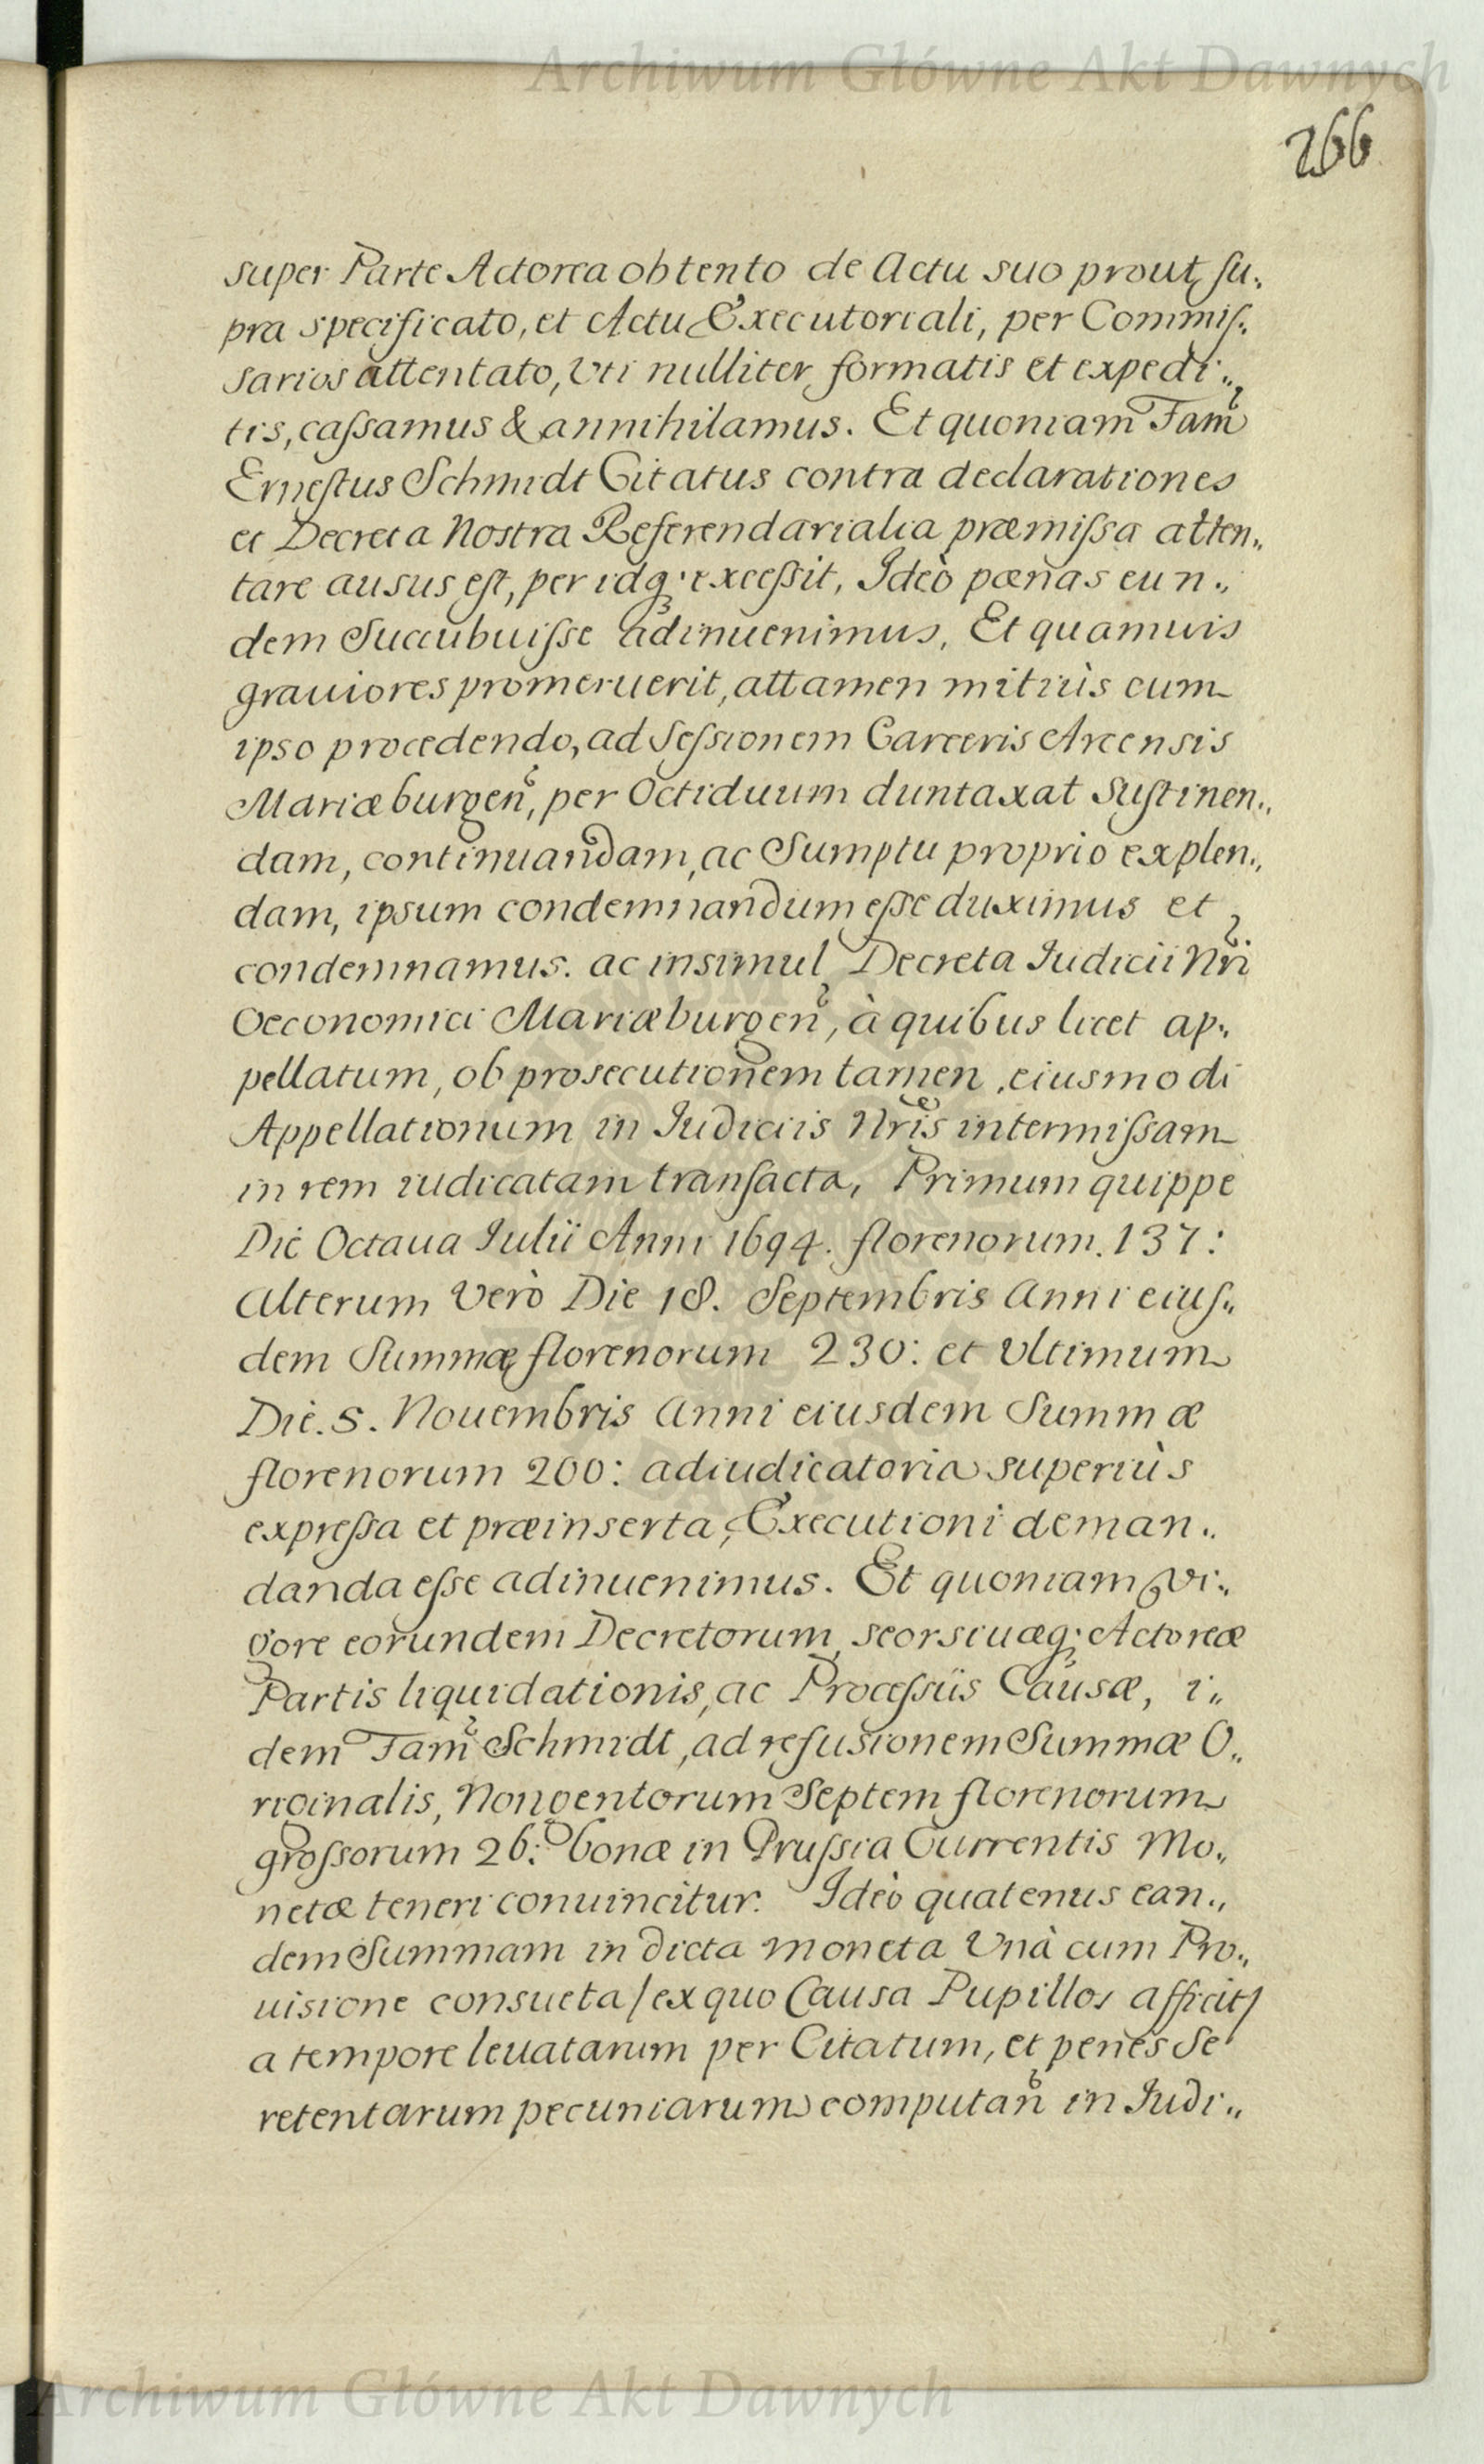 Archiwum Główne Akt Dawnych
266
super Parte Actorea obtento de Actu suo prout su„
pra specificato, et Actu Executoriali, per Commiſ„
sarios attentato, Vti nulliter formatis et expedi„
tis, caſsamus & annihilamus. Et quoniam Fam̃
Erneſtus Schmidt Citatus contra declarationes
et Decreta Nostra Referendarialia præmiſsa atten„
tare ausus eſt, per idq; exceſsit, Ideò pœnas eun„
dem Succubuiſse adinuenimus, Et quamuis
grauiores promeruerit, attamen mitiùs cum
ipso procedendo, ad Seſsionem Carceris Arcensis
Mariæburgeñ, per Octiduum duntaxat Suſtinen„
dam, continuandam, ac Sumptu proprio explen„
dam, ipsum condemnandum eſse duximus et
condemnamus. ac insimul Decreta Iudicii Nr̃i
Oeconomici Mariæburgeñ, à quibus licet ap„
pellatum, ob prosecutionem tamen eiusmodi
Appellationum in Iudiciis Nr̃is intermiſsam
in rem iudicatam tranſacta, Primum quippe
Die Octaua Iulii Anni 1694. florenorum. 137:
Alterum Verò Die 18. Septembris Anni eiuſ„
dem Summæ florenorum 230: et Vltimum
Die. 5. Nouembris Anni eiusdem Summæ
florenorum 200: adiudicatoria superiùs
expreſsa et præinserta, Executioni deman„
danda eſse adinuenimus. Et quoniam vi„
gore eorundem Decretorum, seorsiuæq; Actoreæ
Partis liquidationis, ac Proceſsûs Causæ, i„
dem Fam̃ Schmidt, ad refusionem Summæ O„
riginalis, Nongentorum Septem florenorum
groſsorum 26: bonæ in Pruſsia Currentis Mo„
netæ teneri conuincitur. Ideò quatenus ean„
dem Summam in dicta moneta Vnà cum Pro„
uisione consueta /ex quo Causa Pupillos afficit/
a tempore leuatarum per Citatum, et penès Se
retentarum pecuniarum computañ in Iudi„
Archiwum Główne Akt Dawnych